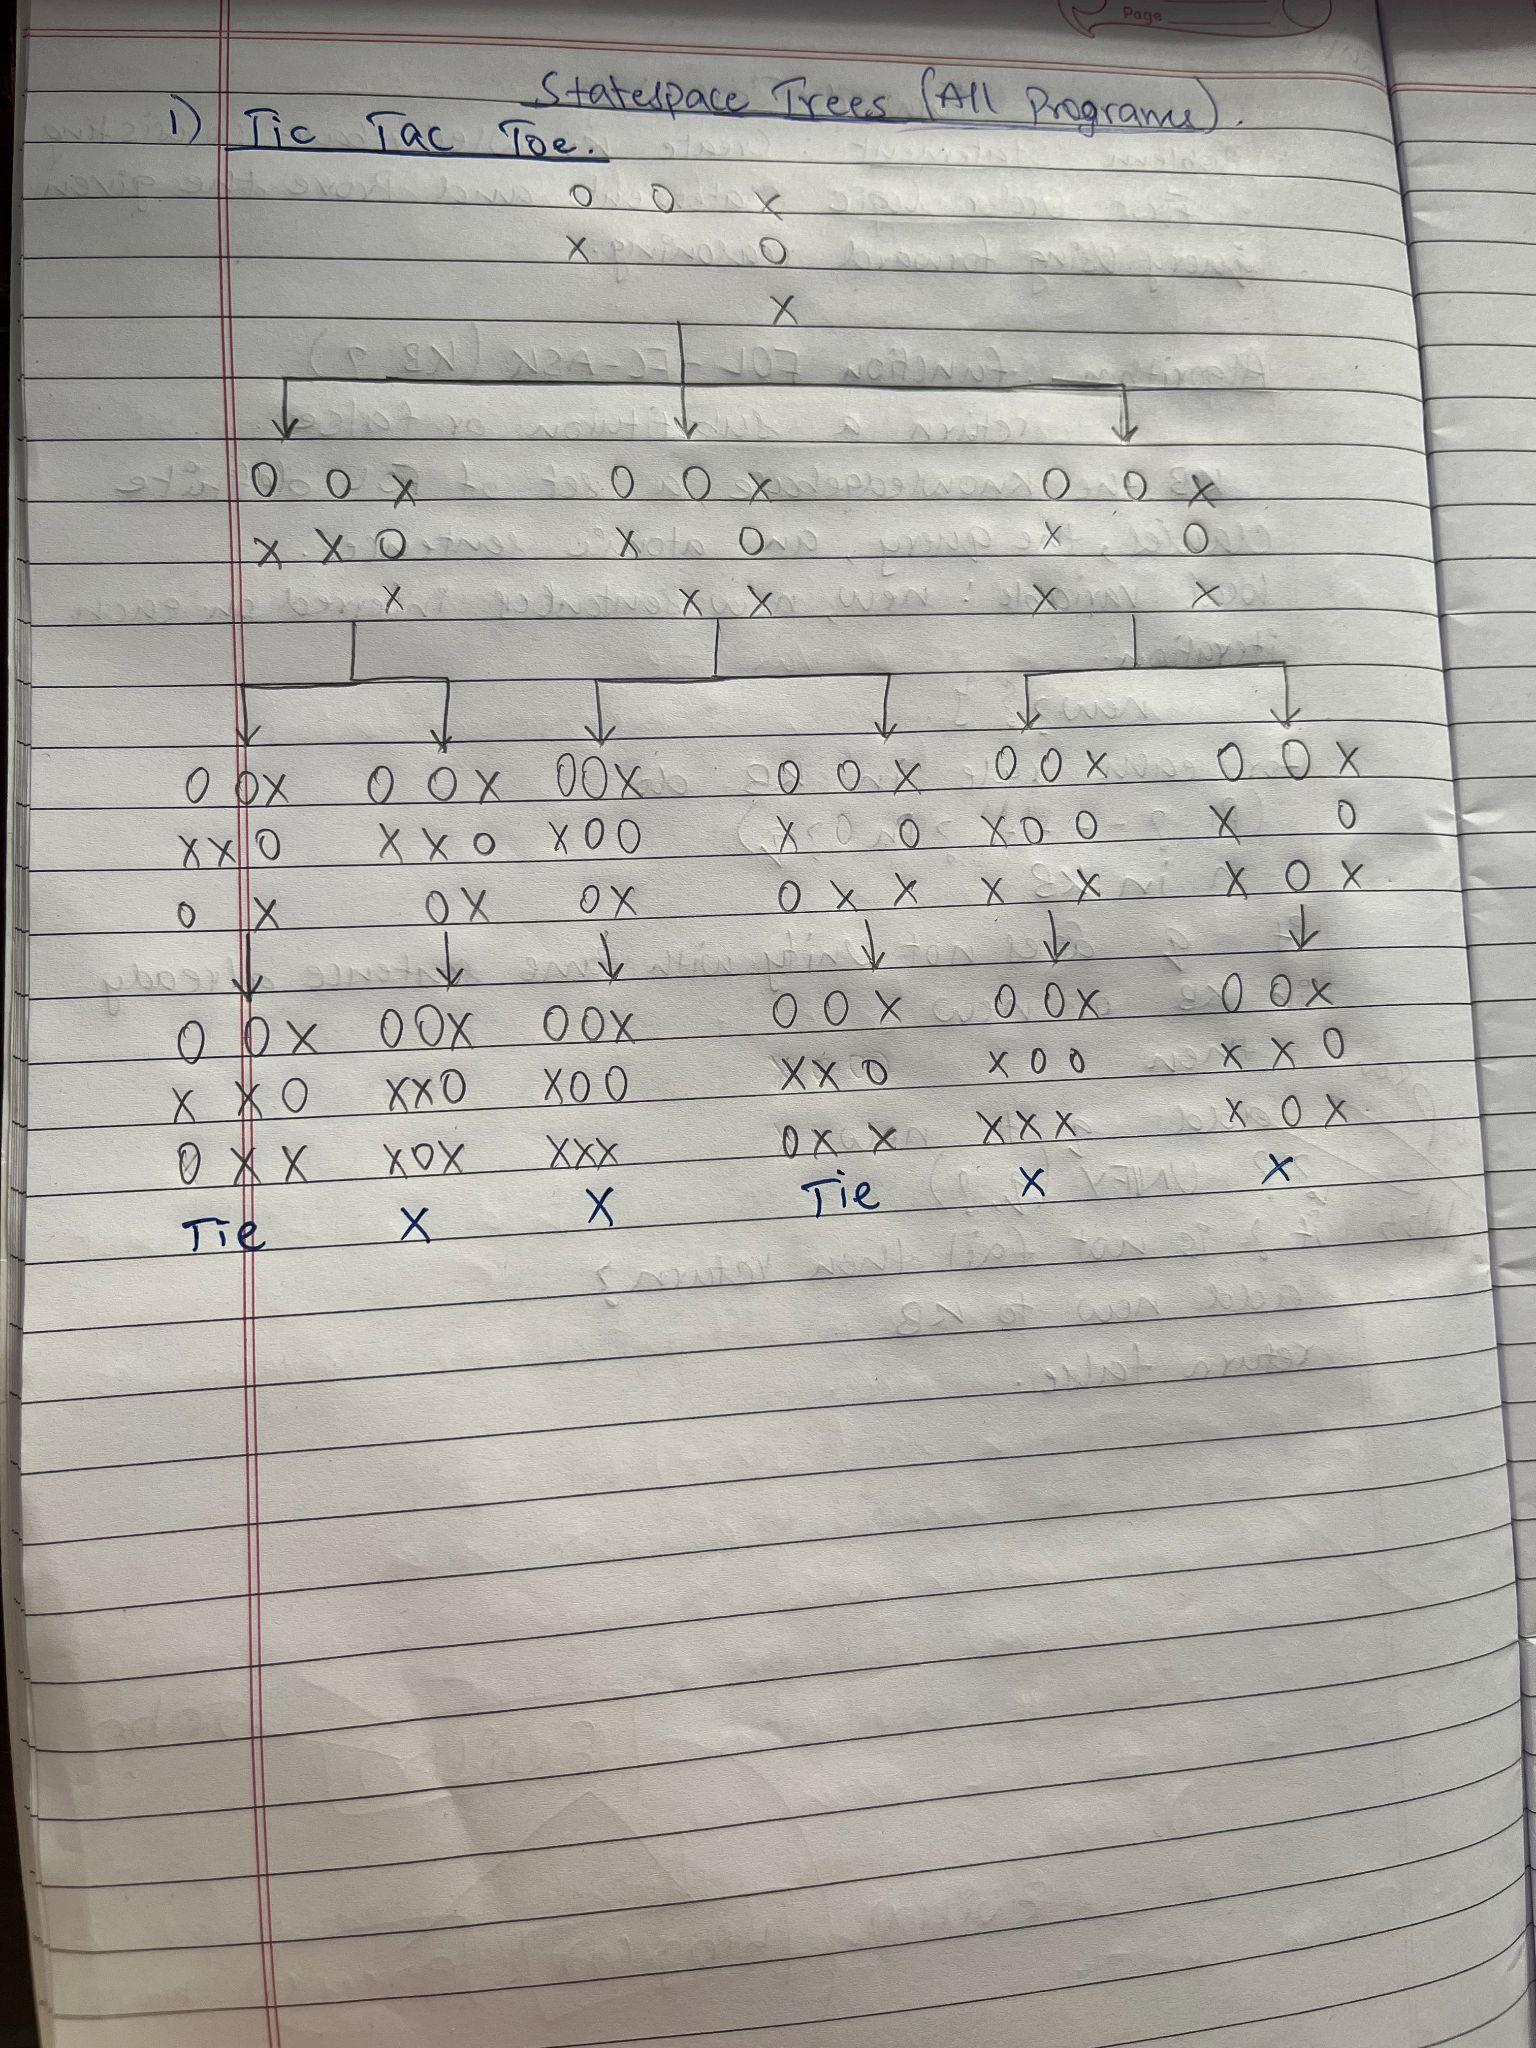 Page
Statespace Trees (All Programs).
1) Tic Tac Toe.
O O X
X O
X
O O X O O X O O X
X X O X O X O
X X X X X
O O X O O X O O X O O X O O X O O X
X X O X X O X O O X O X O O X O
O X O X O X O X X X X X O X
O O X O O X O O X O O X O O X O O X
X X O X X O X O O X X O X O O X X O
O X X X O X X X X O X X X X X X O X
Tie X X Tie X X